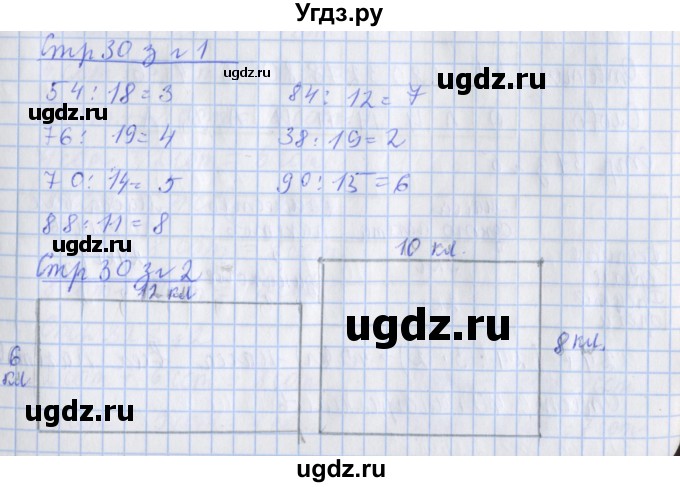 Угдз.ру
Стр 30 з № 1
54 : 18 = 3
84 : 12 = 7
76 : 19 = 4
38 : 19 = 2
70 : 14 = 5
90 : 15 = 6
88 : 11 = 8
Стр 30 з № 2
12 кл
10 кл.
6 кл
8 кл.
ugdz.ru
ugdz.ru
ugdz.ru
ugdz.ru
ugdz.ru
ugdz.ru
ugdz.ru
ugdz.ru
ugdz.ru